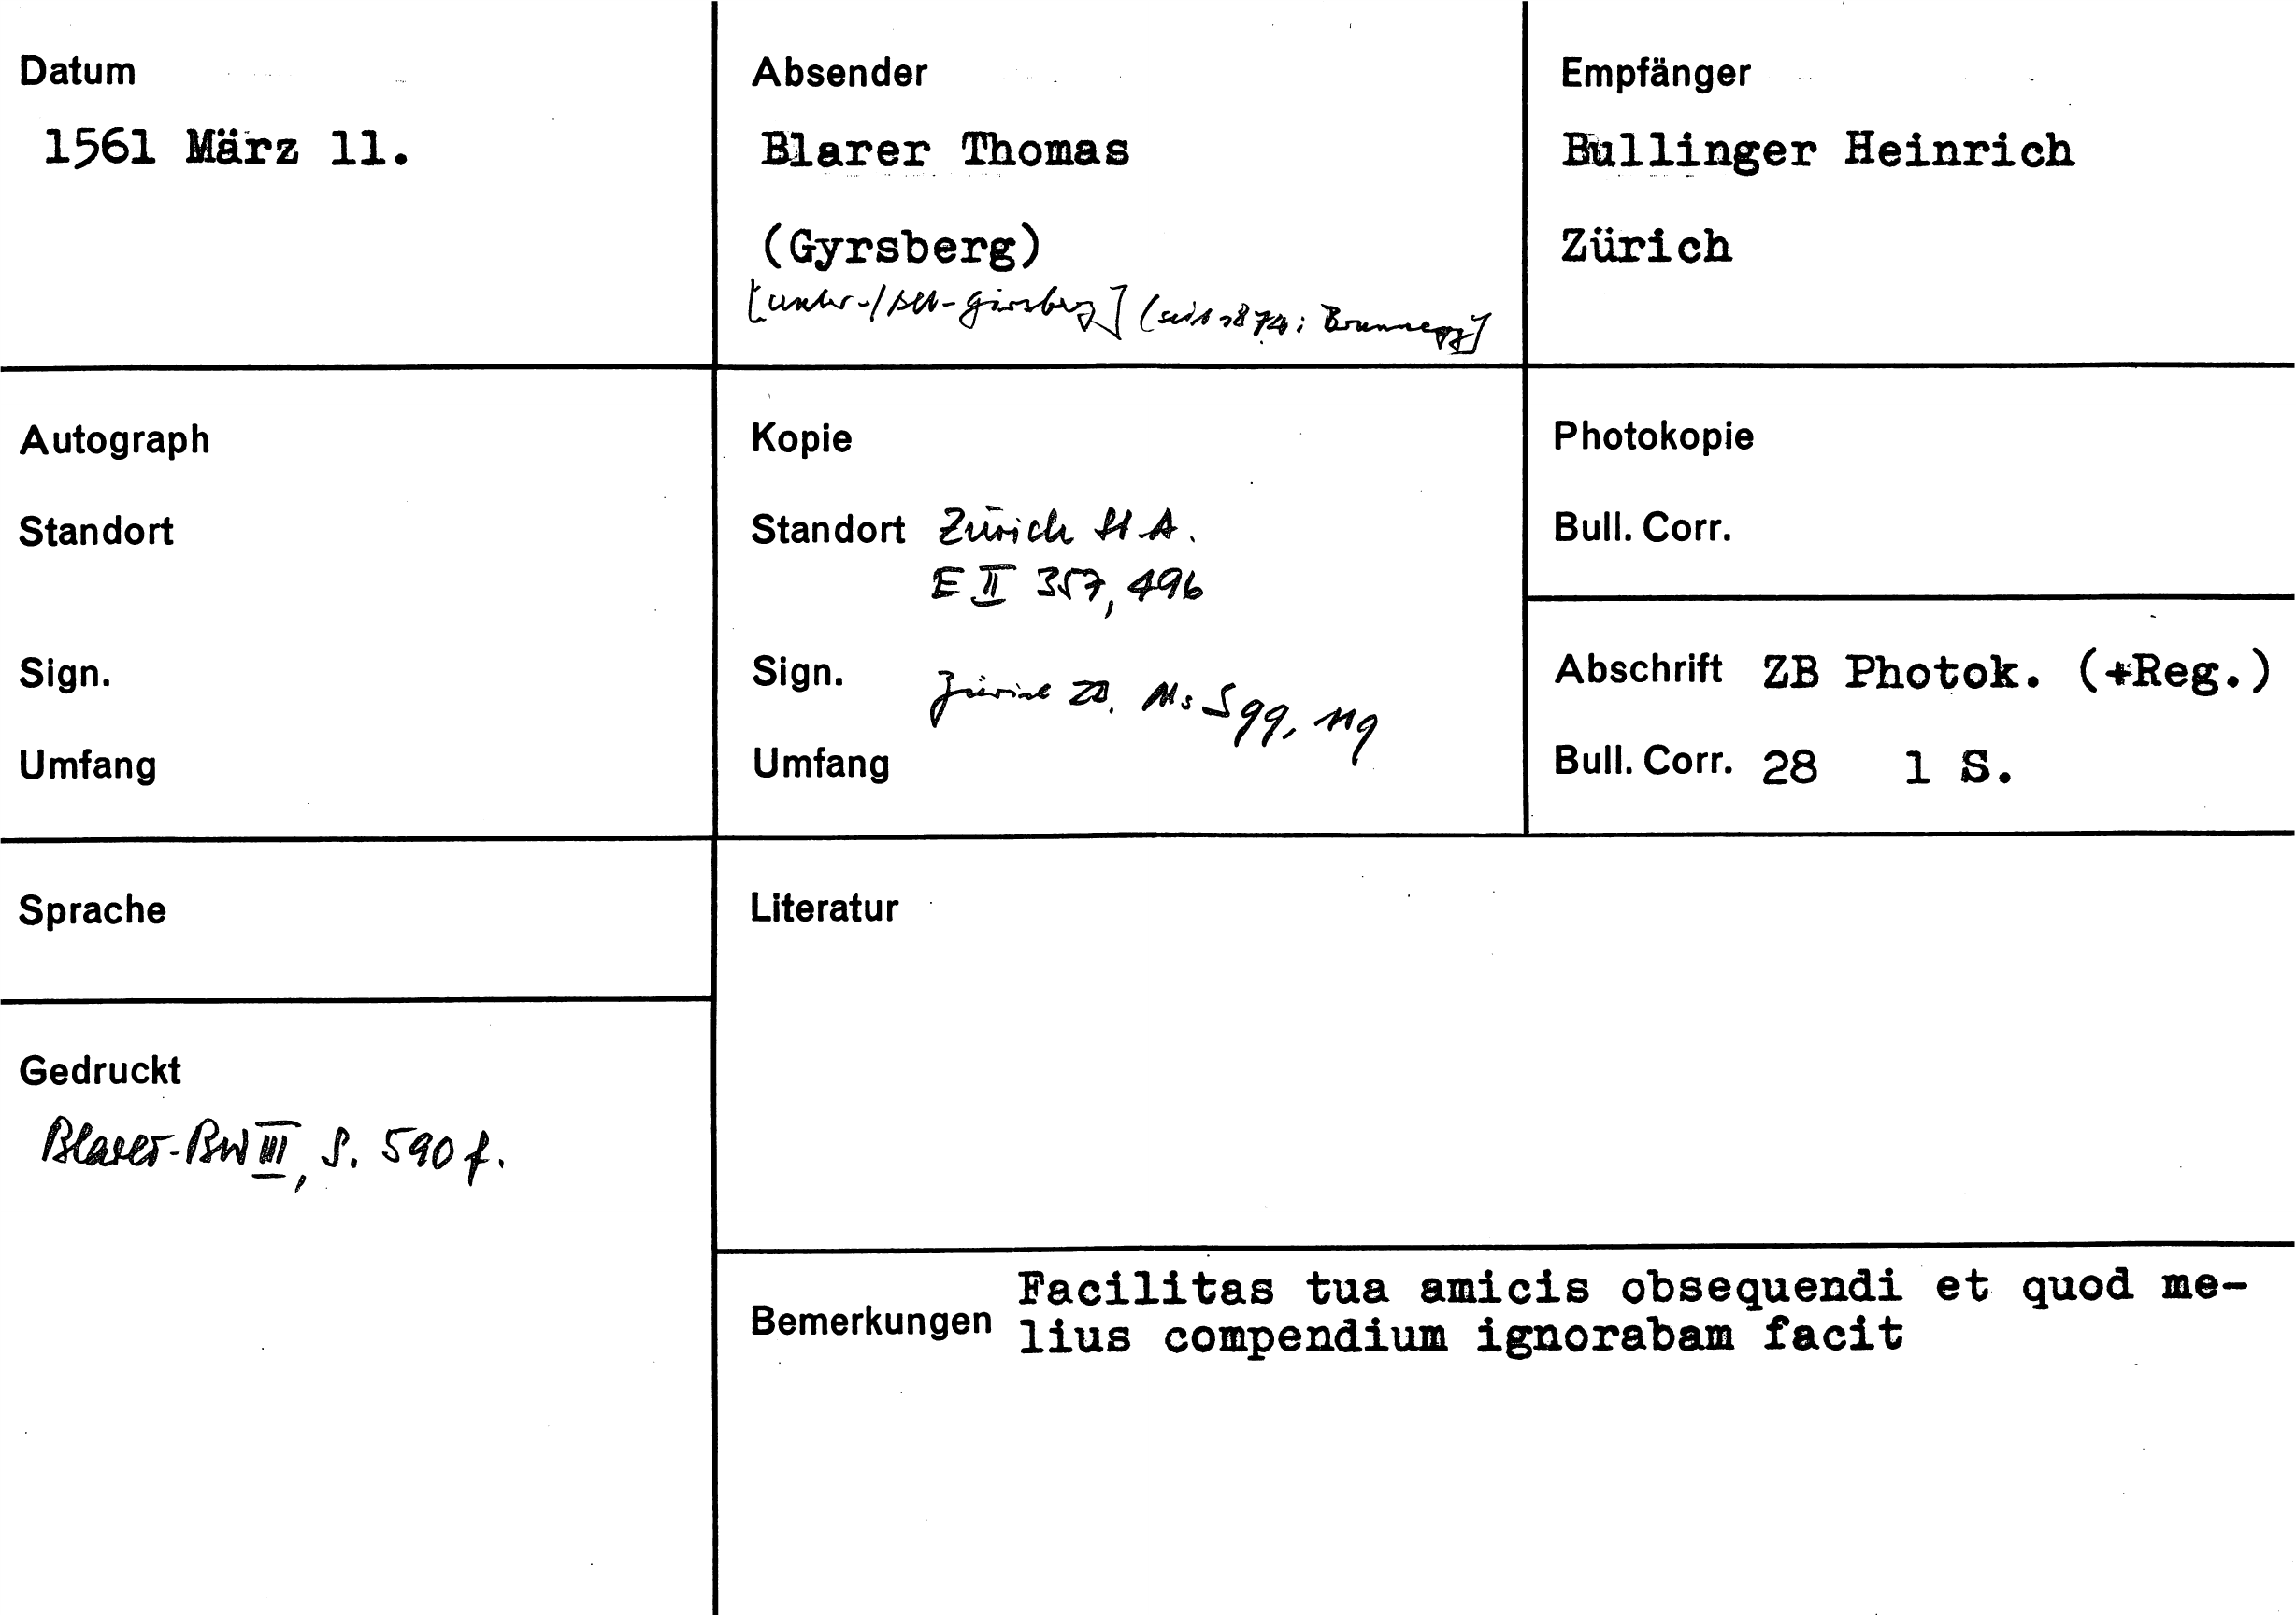 Datum
1561 März 11.
Absender
Blarer Thomas
(Gyrsberg)
[Unter-/Alt-Girsberg] (seit 1874: Brunnegg]
Empfänger
Bullinger Heinrich
Zürich
Autograph
Standort
Sign.
Umfang
Kopie
Standort Zürich StA.
E II 357, 496
Sign. Zürich ZB. Ms S 99, 119
Umfang
Photokopie
Bull. Corr.
Abschrift ZB Photok. (+Reg.)
Bull. Corr. 28 1 S.
Sprache
Gedruckt
Blarer-BW III, S. 590 f.
Literatur
Bemerkungen
Facilitas tua amicis obsequendi et quod me-
lius compendium ignorabam facit